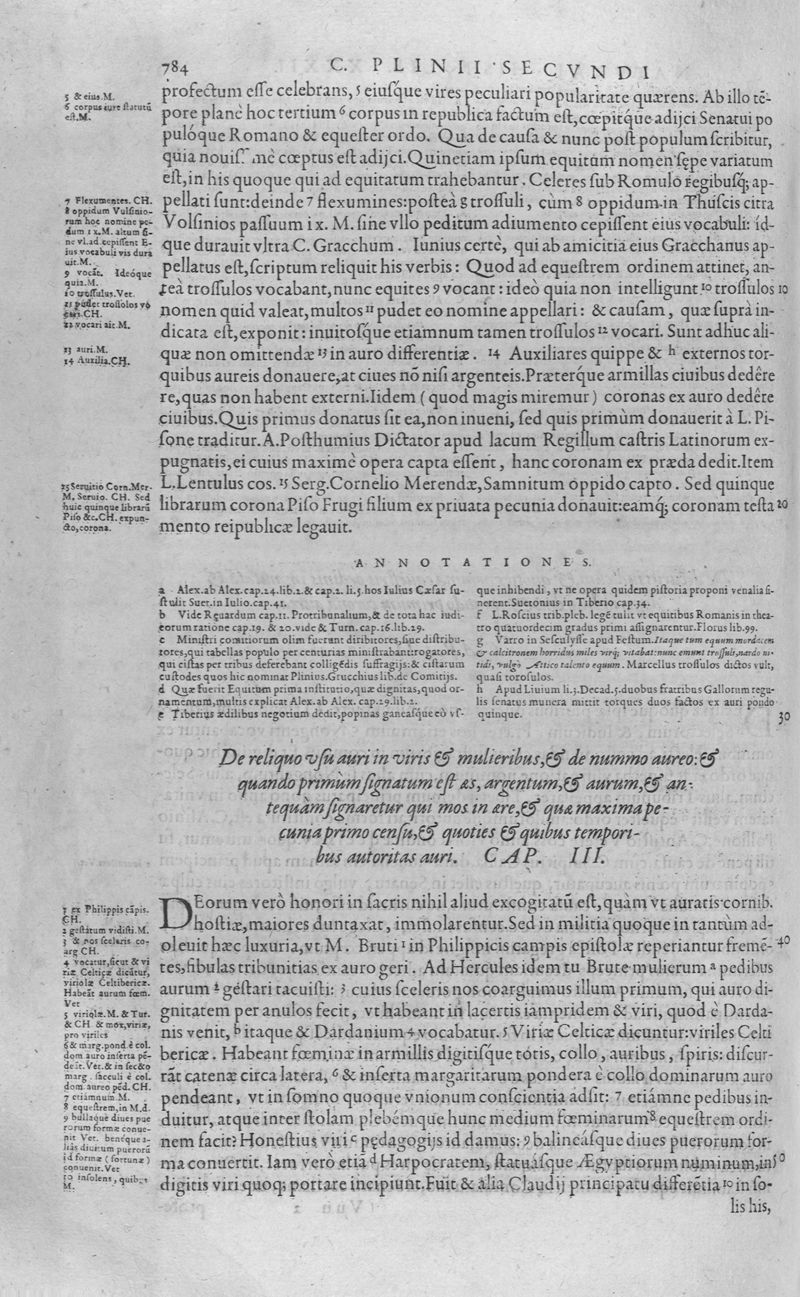 784 C. PLINII SECVNDI
profectum esse celebrans, 5 eiusque vires peculiari popularitate quærens. Ab illo tē-
pore planè hoc tertium 6 corpus in republica factum est, cœpitq́ue adijci Senatui po
pulóque Romano & equester ordo. Qua de causa & nunc post populum scribitur,
quia nouissimè cœptus est adijci. Quinetiam ipsum equitum nomen sępe variatum
est, in his quoque qui ad equitatum trahebantur. Celeres sub Romulo regibusq; ap-
pellati sunt: deinde 7 flexumines: posteà g trossuli, cùm 8 oppidum in Thuscis citra
Volsinios passuum ix. M. sine vllo peditum adiumento cepissent eius vocabuli: íd-
que durauit vltra C. Gracchum. Iunius certè, qui ab amicitia eius Gracchanus ap-
pellatus est, scriptum reliquit his verbis: Quod ad equestrem ordinem attinet, an-
teà trossulos vocabant, nunc equites 9 vocant: ideò quia non intelligunt 10 trossulos 10
nomen quid valeat, multos 11 pudet eo nomine appellari: & causam, quæ suprà in-
dicata est, exponit: inuitosque etiamnum tamen trossulos 12 vocari. Sunt adhuc ali-
quæ non omittendæ 13 in auro differentiæ. 14 Auxiliares quippe & h externos tor-
quibus aureis donauere, at ciues nō nisi argenteis. Præterque armillas ciuibus dedêre
re, quas non habent externi. Iidem (quod magis miremur) coronas ex auro dedêre
ciuibus. Quis primus donatus sit ea, non inueni, sed quis primùm donauerit à L. Pi-
sone traditur. A. Posthumius Dictator apud lacum Regillum castris Latinorum ex-
pugnatis, ei cuius maximè opera capta essent, hanc coronam ex præda dedit. Item
L. Lentulus cos. 15 Serg. Cornelio Merendæ, Samnitum oppido capto. Sed quinque
librarum corona Piso Frugi filium ex priuata pecunia donauit: eamq; coronam testa 20
mento reipublicæ legauit.
5 & eius. M.
6 corpus iure statutū
est. M.
7 Flexumentes. CH.
8 oppidum Vulsinio-
rum hoc nomine pe-
dum ix. M. altum si-
ne vl. ad. cepissent E-
ius vocabuli vis dura
uit. M.
9 vocāt. Ideóque
quia. M.
10 trossulus. Vet.
11 pudet trossolos vo
cari. CH.
12 vocari ait. M.
13 auri. M.
14 Auxilia. CH.
15 Seruitio Corn. Mer.
M. Seruio. CH. Sed
huic quinque librarū
Piso &c. CH. expun-
cto, corona.
ANNOTATIONES.
a Alex. ab Alex. cap. 24. lib. 2. & cap. 2. li. 5. hos Iulius Cæsar su-
stulit Suet. in Iulio. cap. 41.
b Vide Rguardum cap. 11. Protribunalium, & de tota hac iudi-
eorum ratione cap. 19. & 20. vide & Turn. cap. 16. lib. 29.
c Ministri comitiorum olim fuerunt diribitores, siue distribu-
tores, qui tabellas populo per centurias ministrabant: rogatores,
qui cistas per tribus deferebant colligēdis suffragijs: & cistarum
custodes quos hic nominat Plinius. Grucchius lib. de Comitijs.
d Quæ fuerit Equitum prima institutio, quæ dignitas, quod or-
namentum, multis explicat Alex. ab Alex. cap. 29. lib. 2.
e Tiberius ædilibus negotium dedit, popinas ganeasque eò vs-
que inhibendi, vt ne opera quidem pistoria proponi venalia si-
nerent. Suetonius in Tiberio cap. 34.
f L. Roscius trib. pleb. legē tulit vt equitibus Romanis in thea-
tro quatuordecim gradus primi assignarentur. Florus lib. 99.
g Varro in Sesculysse apud Festum. Itaque tum equum mordacem
& calcitronem horridus miles virq; vitabat: nunc emunt trossuli, nardo ni-
tidi, vulgò Attico talento equum. Marcellus trossulos dictos vult,
quasi torosulos.
h Apud Liuium li. 3. Decad. 5. duobus fratribus Gallorum regu-
lis senatus munera mittit torques duos factos ex auri pondo
quinque. 30
De reliquo vsu auri in viris & mulieribus, & de nummo aureo: &
quando primùm signatum est æs, argentum, & aurum, & an-
tequàm signaretur qui mos in ære, & quæ maxima pe-
cunia primo censu, & quoties & quibus tempori-
bus autoritas auri. CAP. III.
DEorum verò honori in sacris nihil aliud excogitatū est, quàm vt auratis cornib.
hostiæ, maiores duntaxat, immolarentur. Sed in militia quoque in tantùm ad-
oleuit hæc luxuria, vt M. Bruti 1 in Philippicis campis epistolæ reperiantur fremē- 40
tes, fibulas tribunitias ex auro geri. Ad Hercules idem tu Brute mulierum a pedibus
aurum 2 gestari tacuisti: 3 cuius sceleris nos coarguimus illum primum, qui auro di-
gnitatem per anulos fecit, vt habeant in lacertis iampridem & viri, quod è Darda-
nis venit, b itaque & Dardanium 4 vocabatur. 5 Viriæ Celticæ dicuntur: viriles Celti
bericæ. Habeant fœminæ in armillis digitisque totis, collo, auribus, spiris: discur-
rāt catenæ circa latera, 6 & inserta margaritarum pondera è collo dominarum auro
pendeant, vt in somno quoque vnionum conscientia adsit: 7 etiámne pedibus in-
duitur, atque inter stolam plebémque hunc medium fœminarum 8 equestrem ordi-
nem facit? Honestiùs viri c pędagogijs id damus: 9 balineásque diues puerorum for-
ma conuertit. Iam verò etiā d Harpocratem, statuásque Ægyptiorum numinum, in 50
digitis viri quoq; portare incipiunt. Fuit & alia Claudij principatu differētia 10 in so-
lis his,
1 ex Philippis cāpis.
CH.
2 gestatum vidisti. M.
3 & nos sceleris co-
arg CH.
4 vocatur, sicut & vi
riæ Celticæ dicūtur,
viriolæ Celtibericæ.
Habeāt aurum fœm.
Vet
5 viriolæ. M. & Tur.
& CH & mox, viriæ,
pro viriles
6 & marg. pond è col.
dom auro inserta pē-
deāt. Vet. & in secto
marg. sacculi è col.
dom aureo pēd. CH.
7 etiamnum. M.
8 equestrem, in M. d.
9 bullasque diues pue
rorum formæ conue-
nit Vet. benéque a-
liàs diuitum puerorū
id formæ (fortunæ)
conuenit. Vet
10 insolens, quibus
M.